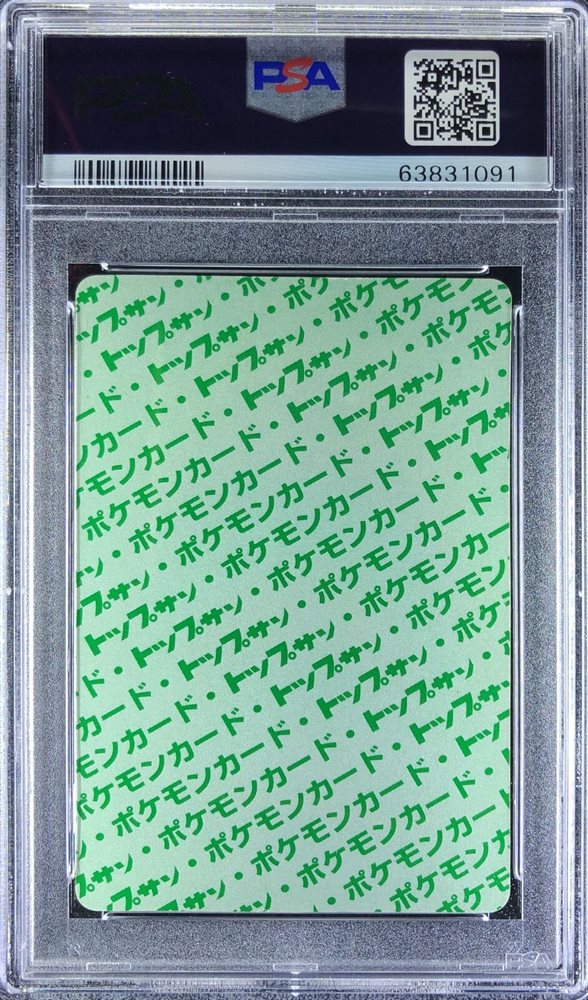 PSA
63831091
サン・
ップサン・ポケ
トップサン・ポケモン
・トップサン・ポケモン
ード・トップサン・ポケモン
ンカード・トップサン・ポケ
ケモンカード・トップサン・ポケ
ポケモンカード・トップサン・
・ポケモンカード・トップサン
ン・ポケモンカード・トップ
ップサン・ポケモンカード・ト
トップサン・ポケモンカード・
・トップサン・ポケモンカード
ド・トップサン・ポケモンカー
カード・トップサン・ポケモン
モンカード・トップサン・ポケ
ケモンカード・トップサン・
・ポケモンカード・トップサン
・ポケモンカード・トップ
ップサン・ポケモンカード・
トップサン・ポケモンカード
・ポケモンカー
ポケモン